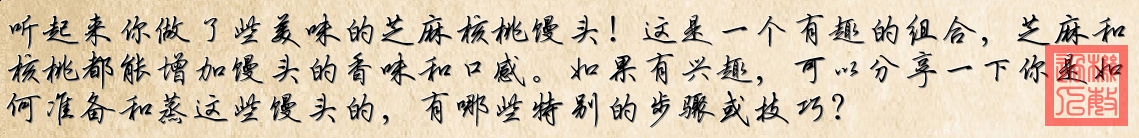 听起来你做了些美味的芝麻核桃馒头！这是一个有趣的组合，芝麻和
核桃都能增加馒头的香味和口感。如果有兴趣，可以分享一下你是如
何准备和蒸这些馒头的，有哪些特别的步骤或技巧？